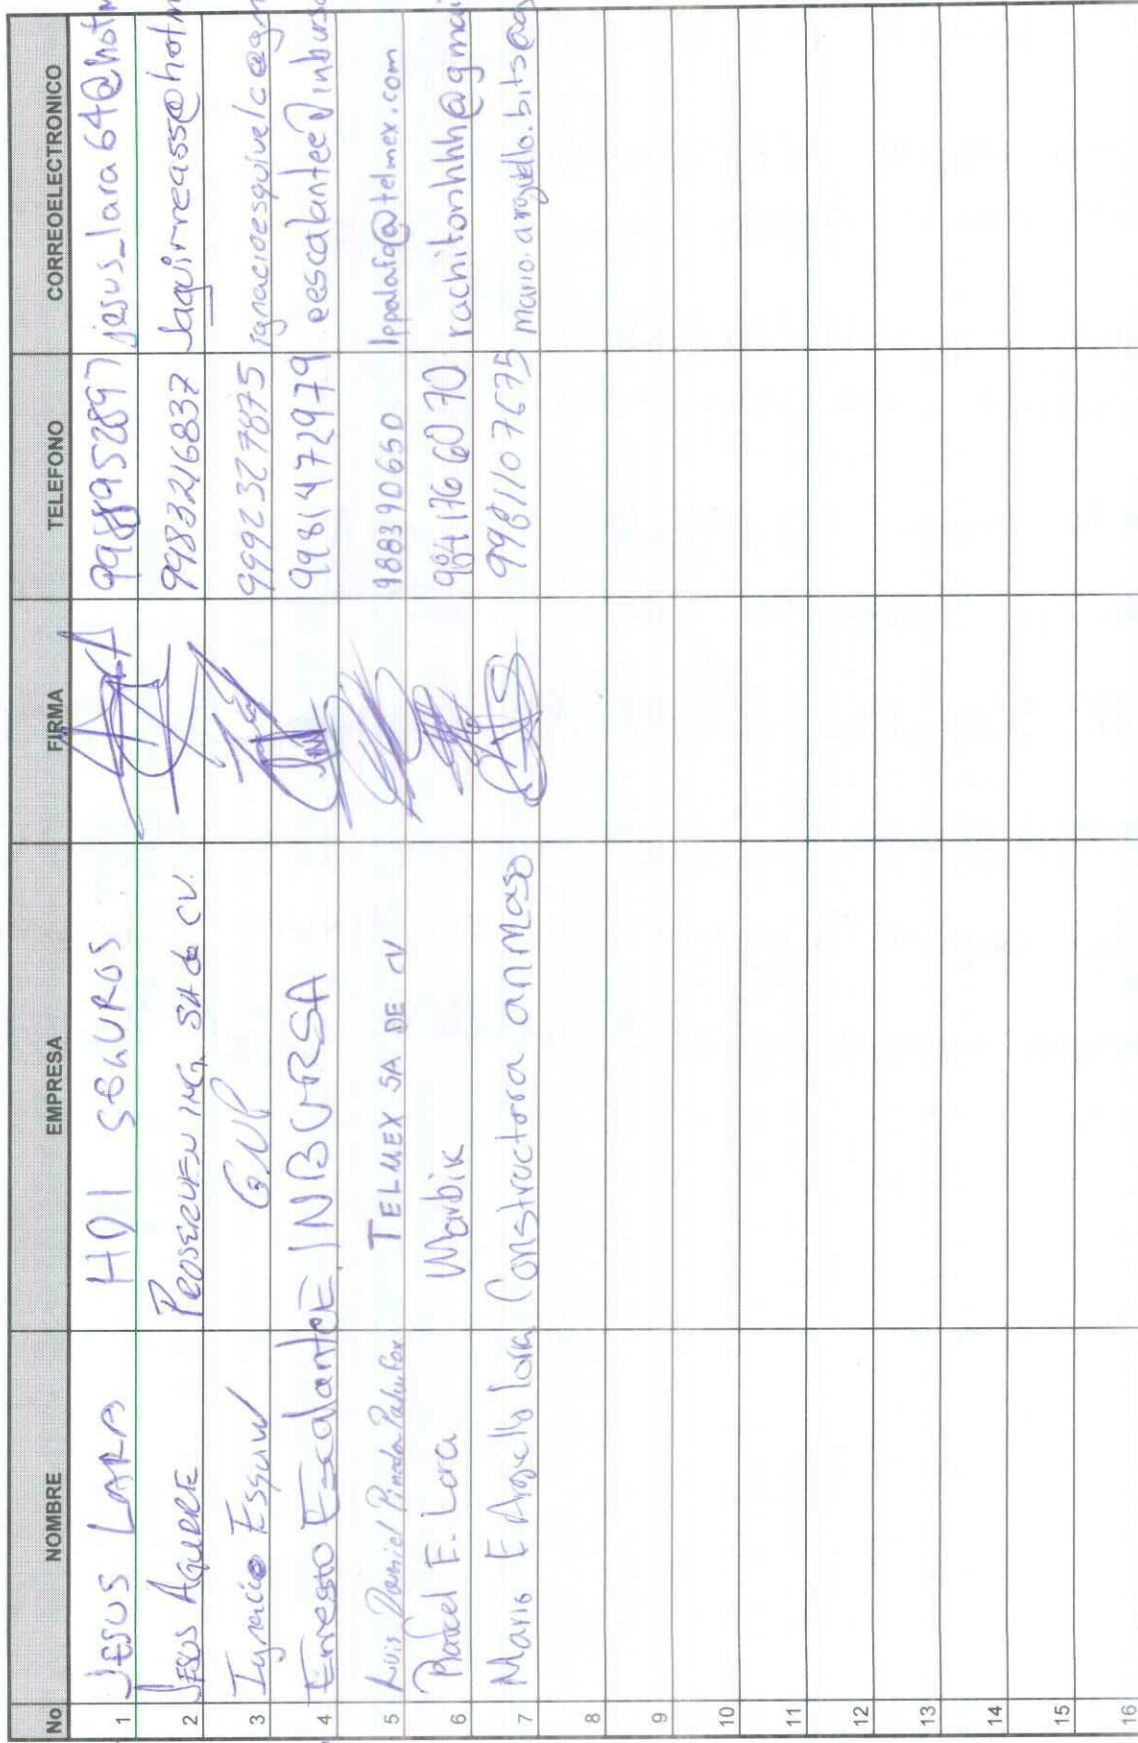 No NOMBRE EMPRESA FIRMA TELEFONO CORREOELECTRONICO
1 JESUS LARA HDI SEGUROS 9988952897 jesus_lara64@hotm
2 JESUS AGUIRRE PROSERVEN ING. SA de CV. 9983216837 Jaguirrea55@hotm
3 Ignacio Esquivel GNP 9992327875 ignacioesquivelc@gm
4 Ernesto Escalante E. INBURSA 9981472979 eescalantee@inbursa
5 Luis Daniel Pineda Palafox TELMEX SA DE CV 988390650 lppalafo@telmex.com
6 Rafael E. Lara 9841766070 rachitonhhh@gmai
7 Mario E Arguello Loria Constructora anmaso 9981107675 mario.arguello.bits@g
8
9
10
11
12
13
14
15
16